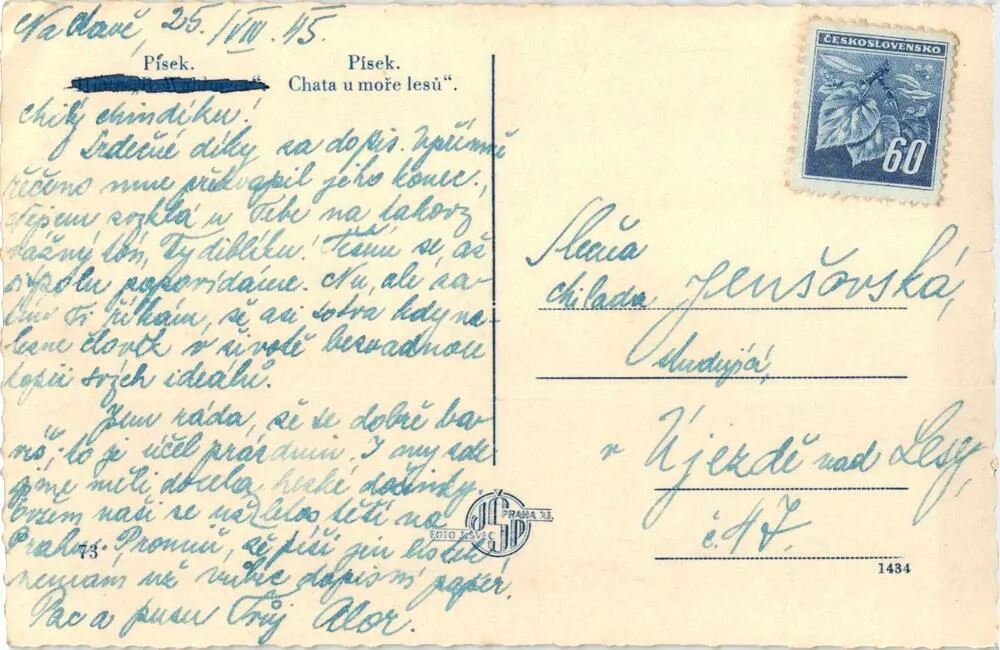 Na Olavě, 25./VIII.45.
Písek.
Písek.
Chata u moře lesů“.
Milý mindíku!
Srdečné díky za dopis. Upřímně
řečeno mne překvapil jeho konec.
Nejsem zvyklá u Tebe na takový
vážný tón, Ty diblíku! Těším se, až
si spolu popovídáme. Nu, ale za-
tím Ti říkám, že asi sotva kdy na-
lezne člověk v životě bezvadnou
kopii svých ideálů.
Jsem ráda, že se dobře ba-
víš; to je účel prázdnin. I my zde
jsme měli docela hezké dožinky.
Ovšem naši se už letos těší na
Prahu. Promiň, že píši jen lístek
nemám už vůbec dopisní papír.
Pac a pusu Tvůj
ČESKOSLOVENSKO
60
Slečna
Milada Jenšovská,
studující,
v Újezdě nad Lesy,
č. 47.
JŠP
FOTO J. ŠVEC PRAHA XI.
73
1434